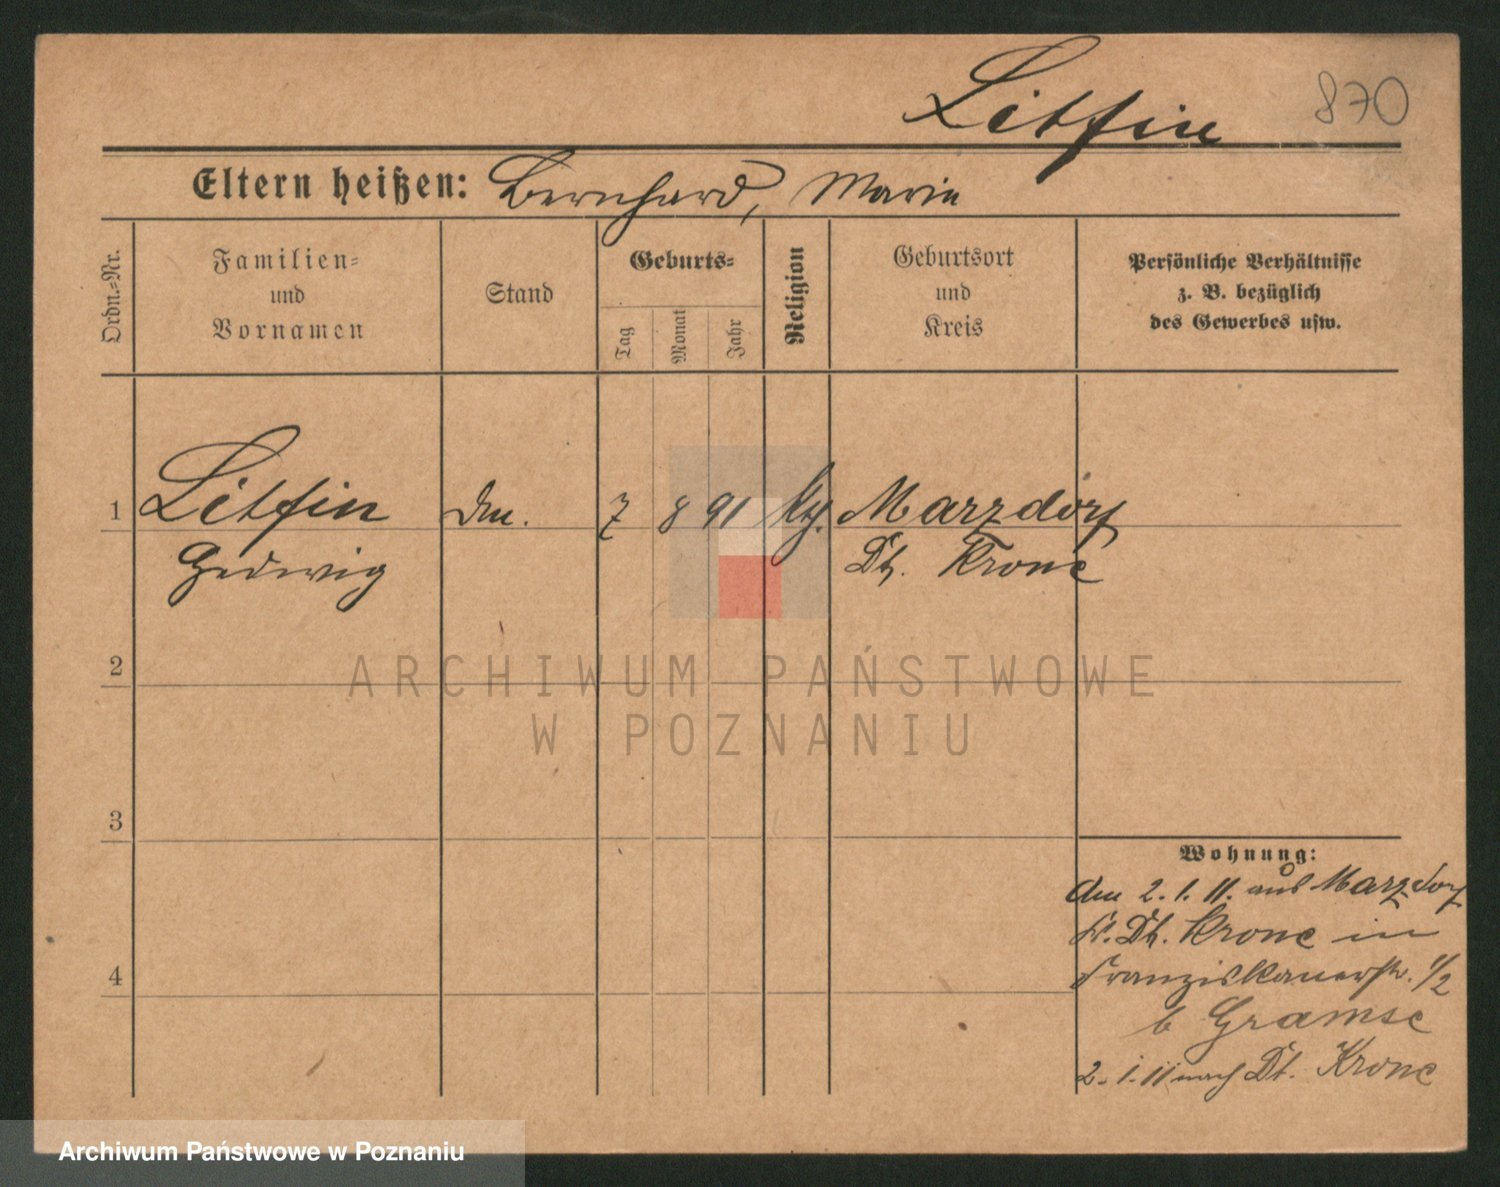 Litfin 870
Eltern heißen: Bernhard, Maria
Ordn.-Nr.
Familien- und Vornamen
Stand
Geburts-
Tag
Monat
Jahr
Religion
Geburtsort und Kreis
Persönliche Verhältnisse
z. B. bezüglich
des Gewerbes usw.
1 Litfin 7 8 91 Marzdorf
Hedwig Dt. Krone
2
ARCHIWUM PAŃSTWOWE
W POZNANIU
3
Wohnung:
2. 1. 11. aus Marzdorf
Kr. Dt. Krone in
Franziskanerstr. 1/2
b Gramse
4
2. 1. 11 nach Dt. Krone
Archiwum Państwowe w Poznaniu